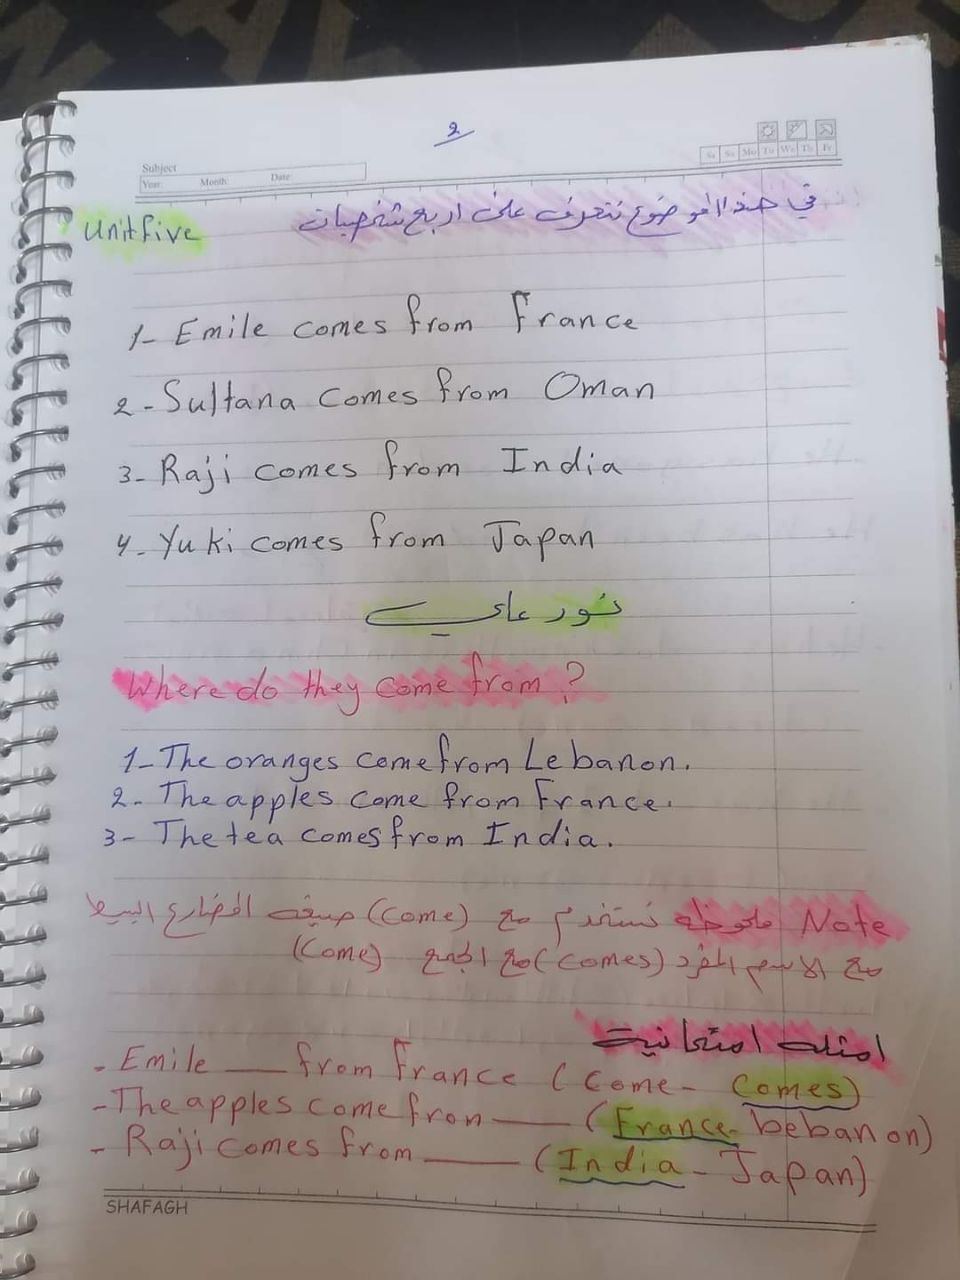 2
Subject
Year: Month: Date:
Sa Su Mo Tu We Th Fr
Unit five
في هذا الموضوع نتعرف على اربع شخصيات
1- Emile comes from France
2- Sultana comes from Oman
3- Raji comes from India
4- Yuki comes from Japan
نور علي
Where do they come from?
1- The oranges come from Lebanon.
2- The apples come from France.
3- The tea comes from India.
Note ملاحظه نستخدم مع (come) صيغه المضارع البسيط
مع الاسم المفرد (comes) مع الجمع (come)
امثله امتحانية
- Emile ___ from France (Come - Comes)
- The apples come from ___ (France - bebanon)
- Raji comes from ___ (India - Japan)
SHAFAGH